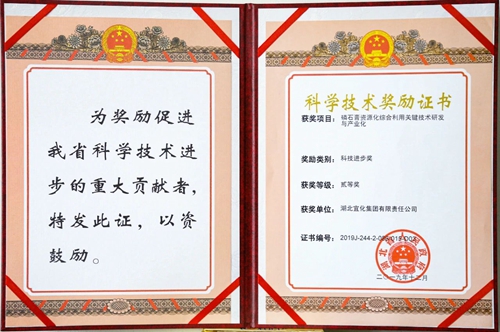 为奖励促进
我省科学技术进
步的重大贡献者，
特发此证，以资
鼓励。
科学技术奖励证书
获奖项目：磷石膏资源化综合利用关键技术研发
与产业化
奖励类别：科技进步奖
获奖等级：贰等奖
获奖单位：湖北宜化集团有限责任公司
证书编号：
二〇一九年十二月